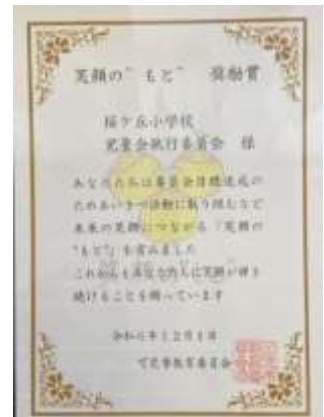 笑顔の"もと" 奨励賞
桜ケ丘小学校
児童会執行委員会 様
あなたたちは委員会目標達成の
ためあいさつ活動に取り組むなど
未来の笑顔につながる「笑顔の
"もと"」を育みました
これからもみなさんに笑顔が輝き
続けることを願っています
令和6年12月1日
可児市教育委員会